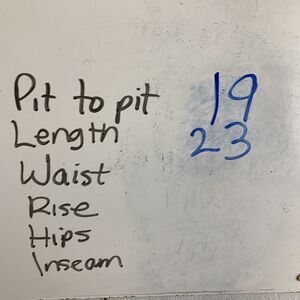 Pit to pit 19
Length 23
Waist
Rise
Hips
Inseam